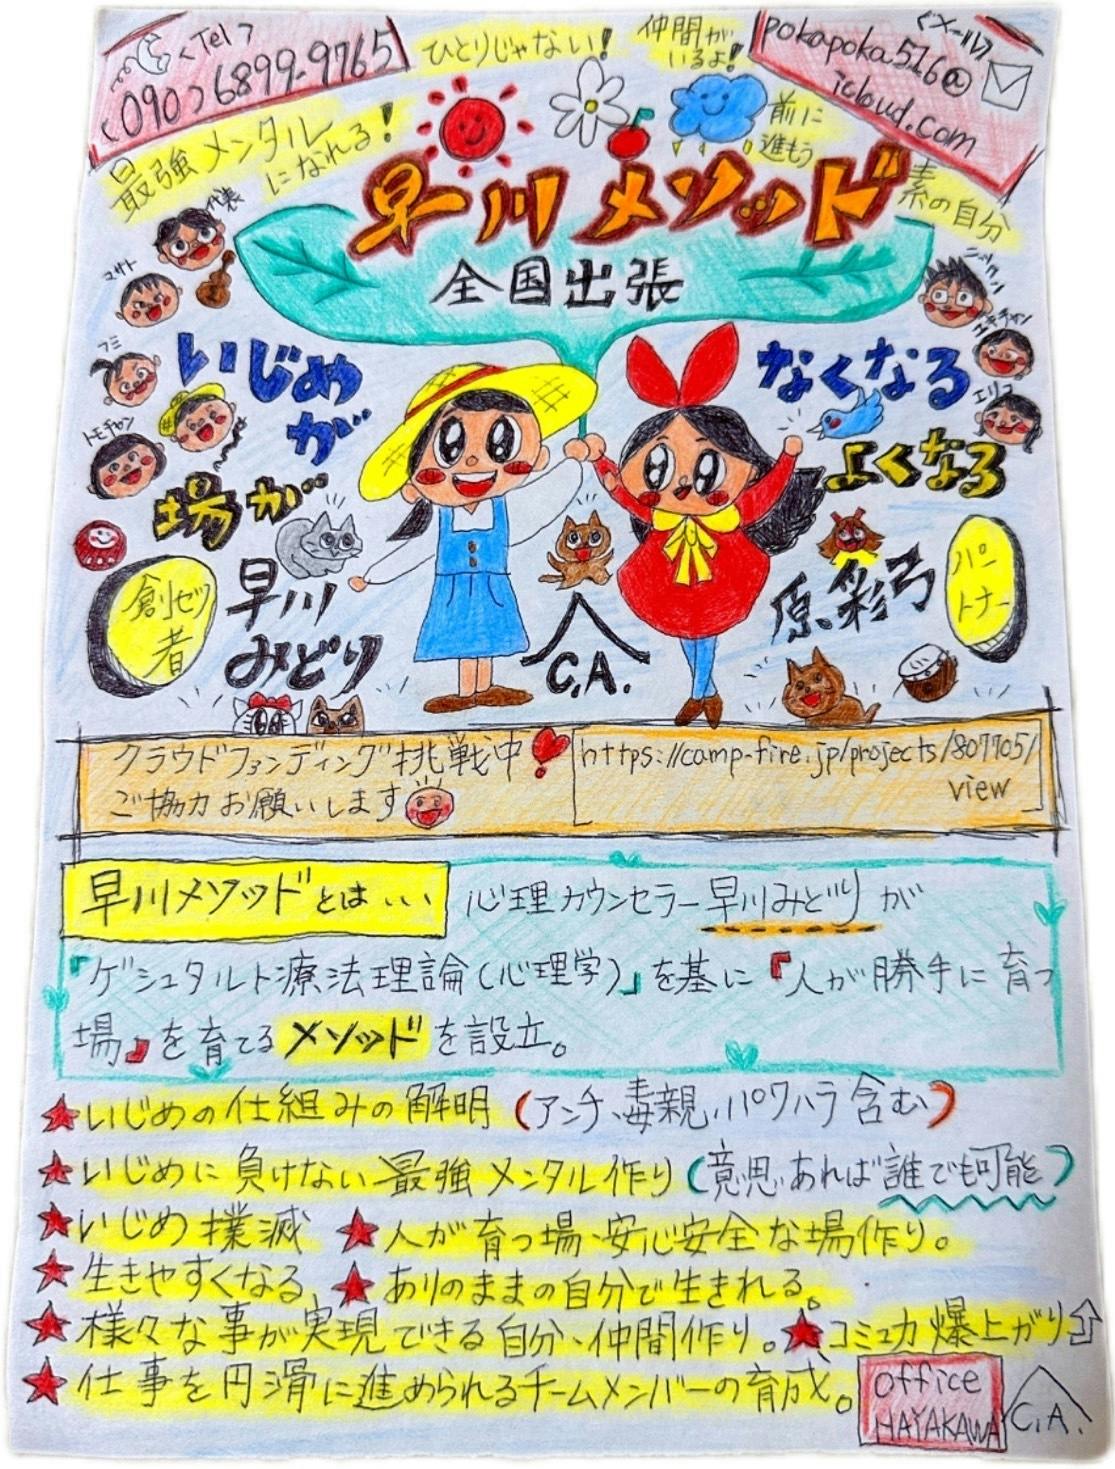 <Tel>
(090)6899-9765
ひとりじゃない!
仲間が
いるよ!
<メール>
pokapoka.516@
icloud.com
最強メンタル
になれる!
前に
進もう
素の自分
早川メソッド
全国出張
代表
マサト
フミ
トモチャン
エリコ
いじめ
が
なくなる
場が
よくなる
創設
者
早川
みどり
C.A.
原彩弓
パー
トナー
クラウドファンディング挑戦中
ご協力お願いします
https://camp-fire.jp/projects/807705/
view
早川メソッドとは...
心理カウンセラー早川みどりが
『ゲシュタルト療法理論(心理学)』を基に『人が勝手に育つ
場』を育てるメソッドを設立。
★いじめの仕組みの解明(アンチ、毒親、パワハラ含む)
★いじめに負けない最強メンタル作り(意思あれば誰でも可能)
★いじめ撲滅 ★人が育つ場、安心安全な場作り。
★生きやすくなる、★ありのままの自分で生きれる。
★様々な事が実現できる自分、仲間作り。★コミュ力爆上がり⇧
★仕事を円滑に進められるチームメンバーの育成。
office
HAYAKAWA
C.A.